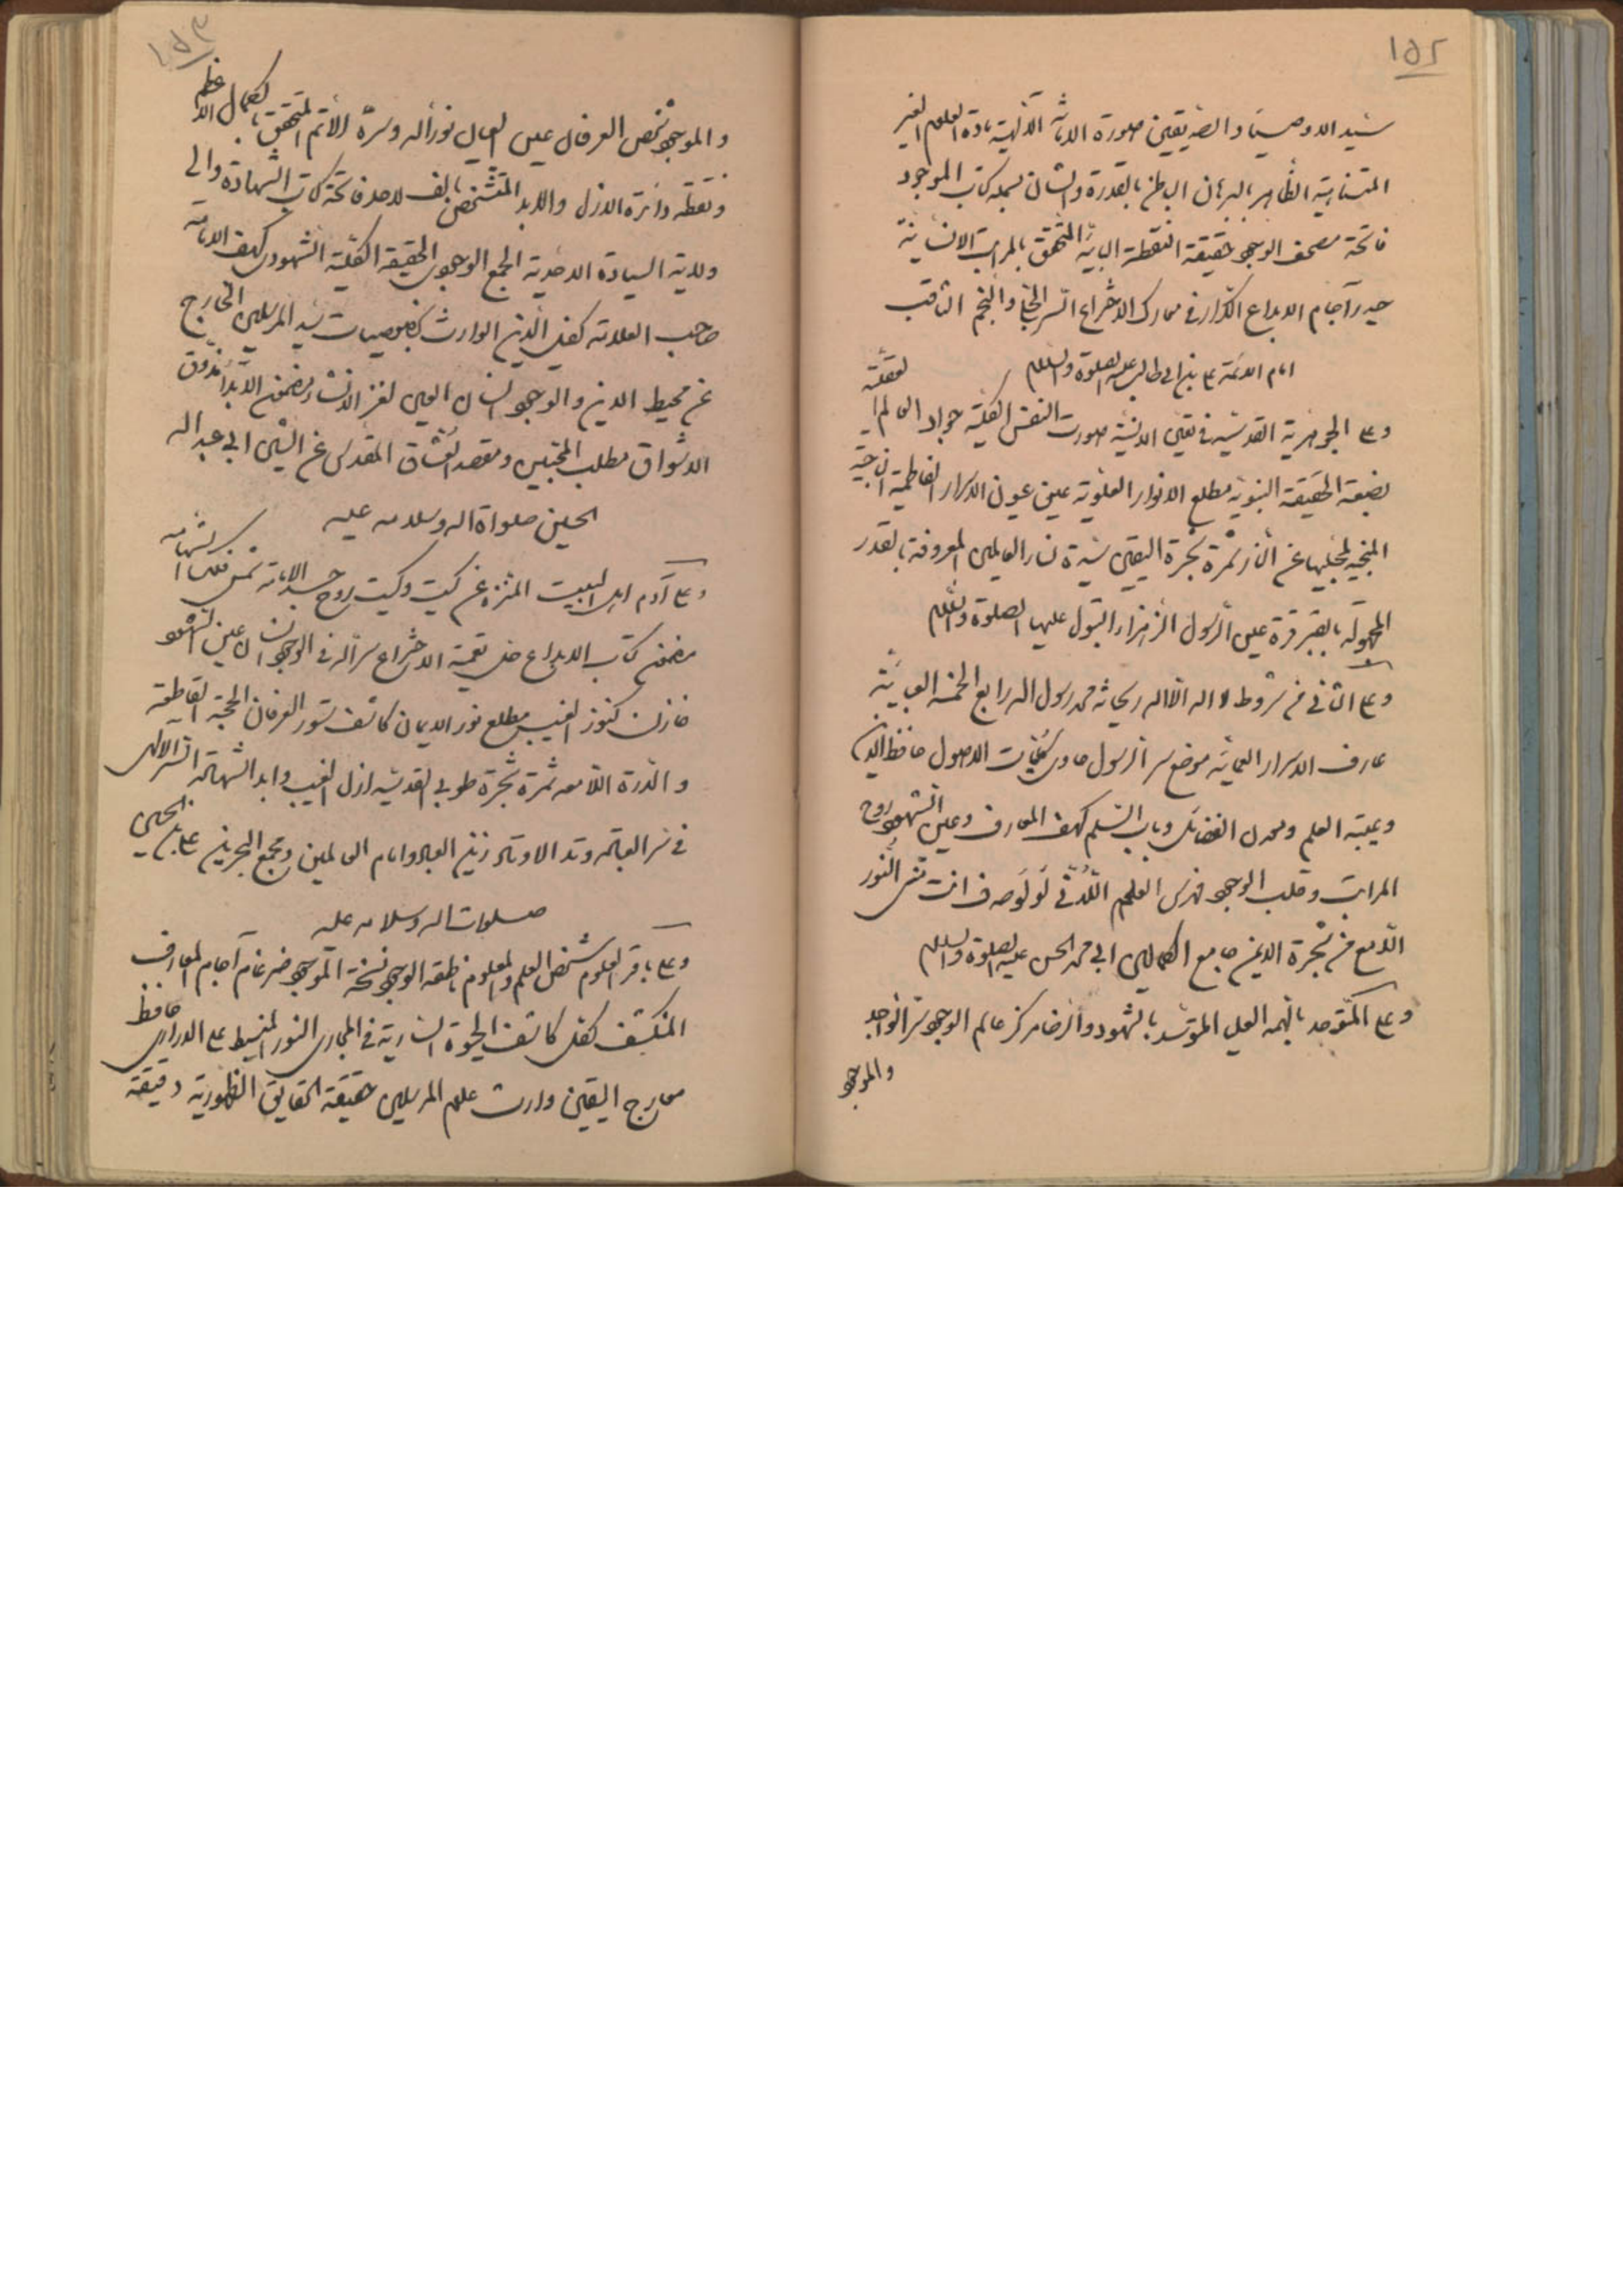 ١٥٢
سيد الاوصياء والصديقين صورة الامانة الالهية مادة العلوم الغير
المتناهية الظاهر بالبرهان الباطن بالقدرة والشان بسملة كتاب الموجود
فاتحة مصحف الوجود حقيقة النقطة البائية المتحقق بالمراتب الانسانية
حيدر آجام الابداع الكرار في معارك الاختراع السر الجلي والنجم الثاقب
امام الائمة على بن ابي طالب عليه الصلوة والسلام
وعلى الجوهرية القدسية في تعين الانسية صورت النفس الكلية جواد العالم العقلية
بضعة الحقيقة النبوية مطلع الانوار العلوية عين عيون الاسرار الفاطمية الناجية
المنجية لمحبيها عن النار ثمرة شجرة اليقين سيدة نساء العالمين المعروفة بالقدر
المجهولة بالقبر قرة عين الرسول الزهراء البتول عليها الصلوة والسلام
وعلى الثاني من شروط لا اله الا الله ريحانة محمد رسول الله رابع الخمسة العبائية
عارف الاسرار العمائية موضع سر الرسول حاوى كليات الاصول حافظ الدين
وعيبة العلم ومعدن الفضائل وباب السلم كهف المعارف وعين الشهود روح
المراتب وقلب الوجود فهرس العلوم اللدني لؤلؤ صدف انت مني النور
اللامع من شجرة الايمن جامع الكمالين ابي محمد الحسن عليه الصلوة والسلام
وعلى المتوحد بالهمة العليا المتوسد بالشهود والرضا مركز عالم الوجود سر الواجد
والموجود
١٥٣
والموجود شخص العرفان عين العيان نور الله وسره الاتم المتحقق بالكمال الاعظم
ونقطة دائرة الازل والابد المتشخص بالف الاحد فاتحة كتاب الشهادة والى
ولاية السيادة الاحدية الجمع الوجودى الحقيقة الكلية الشهودى كهف الامامة
صاحب العلامة كفيل الدين الوارث بخصوصيات سيد المرسلين الخارج
عن محيط الاين والوجود انسان العين لغز الانشاء مضمون الابداع مذوق
الاذواق ومشوق
الاشواق مطلب المحبين ومقصد العشاق المقدس عن الشين ابي عبد الله
الحسين صلواة الله وسلامه عليه
وعلى آدم اهل البيت المنزه عن كيت وكيت روح جسد الامامة شمس فلك الشهامة
مضمون كتاب الابداع حل تعمية الاختراع سر الله في الوجود انسان عين الشهود
خازن كنوز الغيب مطلع نور الايمان كاشف ستور العرفان الحجة القاطعة
والدرة اللامعة ثمرة شجرة طوبى القدسية ازل الغيب وابد الشهادة السر الالهى
في سر العبادة وتد الاوتاد زين العباد امام العالمين ومجمع البحرين على بن الحسين
صلوات الله وسلامه عليه
وعلى باقر العلوم شخص العلم والمعلوم ناطقة الوجود نسخة الموجود ضرغام آجام المعارف
المنكشف لكل كاشف الحيوة السارية في المجارى النور المنبسط على الدرارى حافظ
معارج اليقين وارث علوم المرسلين حقيقة الحقايق الظهورية دقيقة